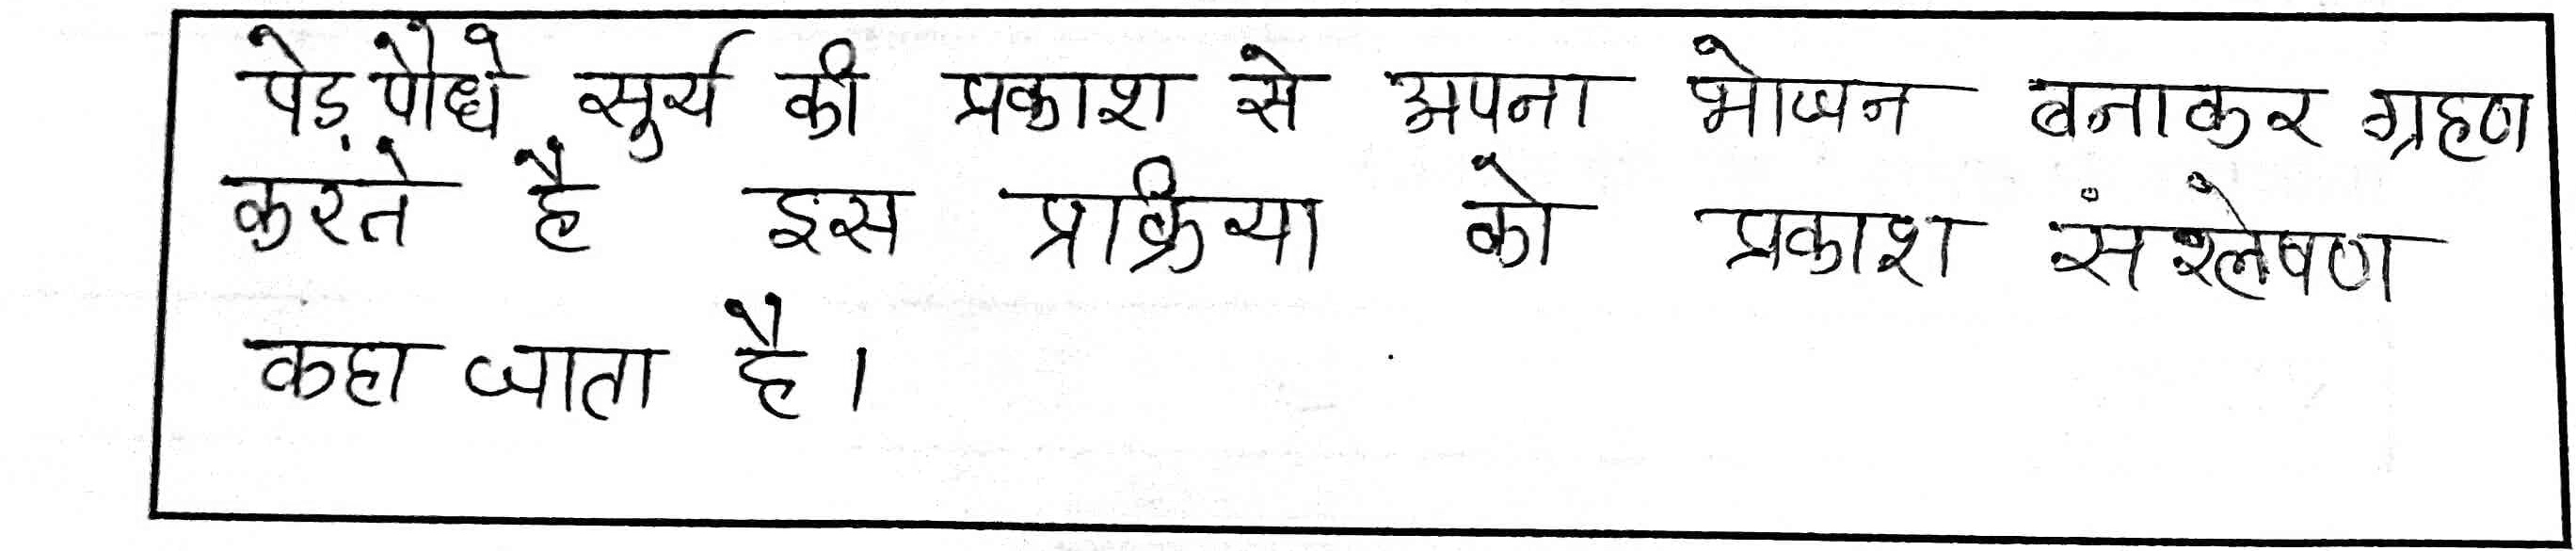 पेड़ पौधे सुर्य की प्रकाश से अपना भोजन बनाकर ग्रहण
करते है इस प्रक्रिया को प्रकाश संश्लेषण
कहा जाता है।